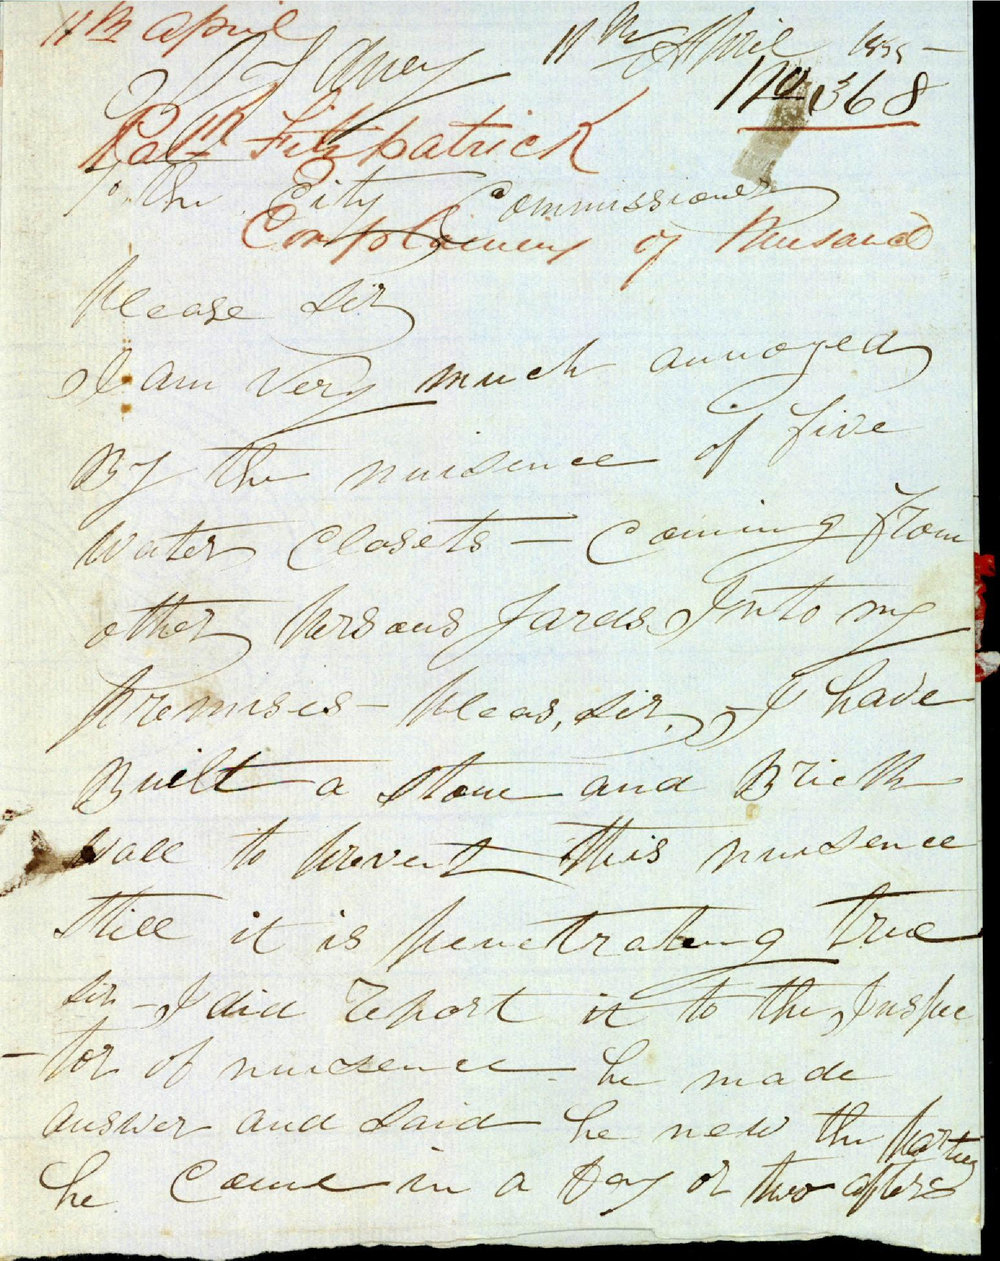 11th April
Sydney 11th April 1855 –
No 368
Patk Fitzpatrick
To the City Commissioner
Complaining of Nusance
Please Sir
I am very much annoyed
By the nuisence of five
water Closets – Coming from
other persons yards Into my
premises – pleas, sir, – I have
Built a stone and Brick
wall to prevent this nuisence
still it is penetrating true
sir – I did report it to the Inspec
– tor of nuisence he made
answer and said he new the parties
he came in a Day or two afters